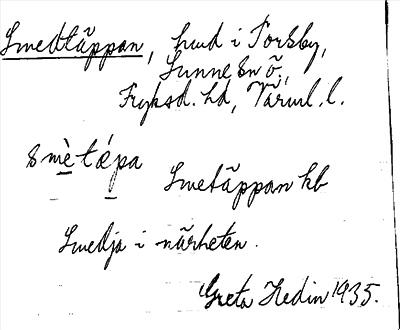 Smedtäppan, hmd i Torsby,
Sunne sn ö.,
Fryksd. hd, Värml. l.
smè̱tǽpa
Smetäppan kb
Smedja i närheten.
Greta Hedin 1935.